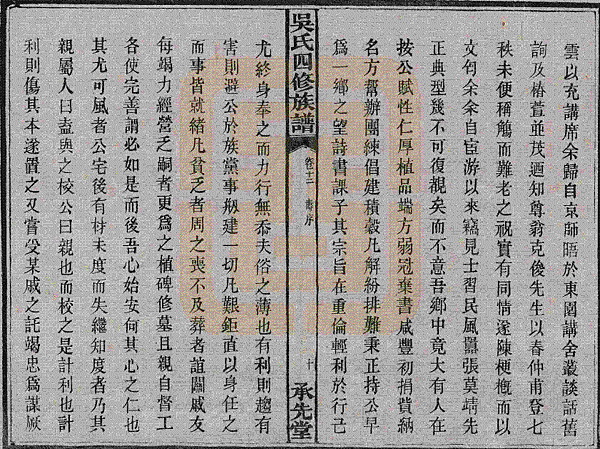 雲以充講席余歸自京師晤於東園講舍叢談話舊
詢及椿萱並茂廼知尊翁克俊先生以春仲甫登七
秩未便稱觴而難老之祝實有同情遂陳梗概而以
文句余余自宦游以來竊見士習民風囂張莫靖先
正典型幾不可復覩矣而不意吾鄉中竟大有人在
按公賦性仁厚植品端方弱冠棄書咸豐初捐貲納
名方幫辦團練倡建積穀凡解紛排難秉正持公早
爲一鄉之望詩書課子其宗旨在重倫輕利於行己
吳氏四修族譜
卷十二 壽序
十
承先堂
尤終身奉之而力行無忝夫俗之薄也有利則趨有
害則避公於族黨事剏建一切凡艱鉅直以身任之
而事皆就緒凡貧乏者周之喪不及葬者誼關戚友
每竭力經營乏嗣者更爲之植碑修墓且親自督工
各使完善謂必如是而後吾心始安何其心之仁也
其尤可風者公宅後有材木度而失繼知度者乃其
親屬人曰盍與之校公曰親也而校之是計利也計
利則傷其本遂置之又嘗受某戚之託竭忠爲謀厥